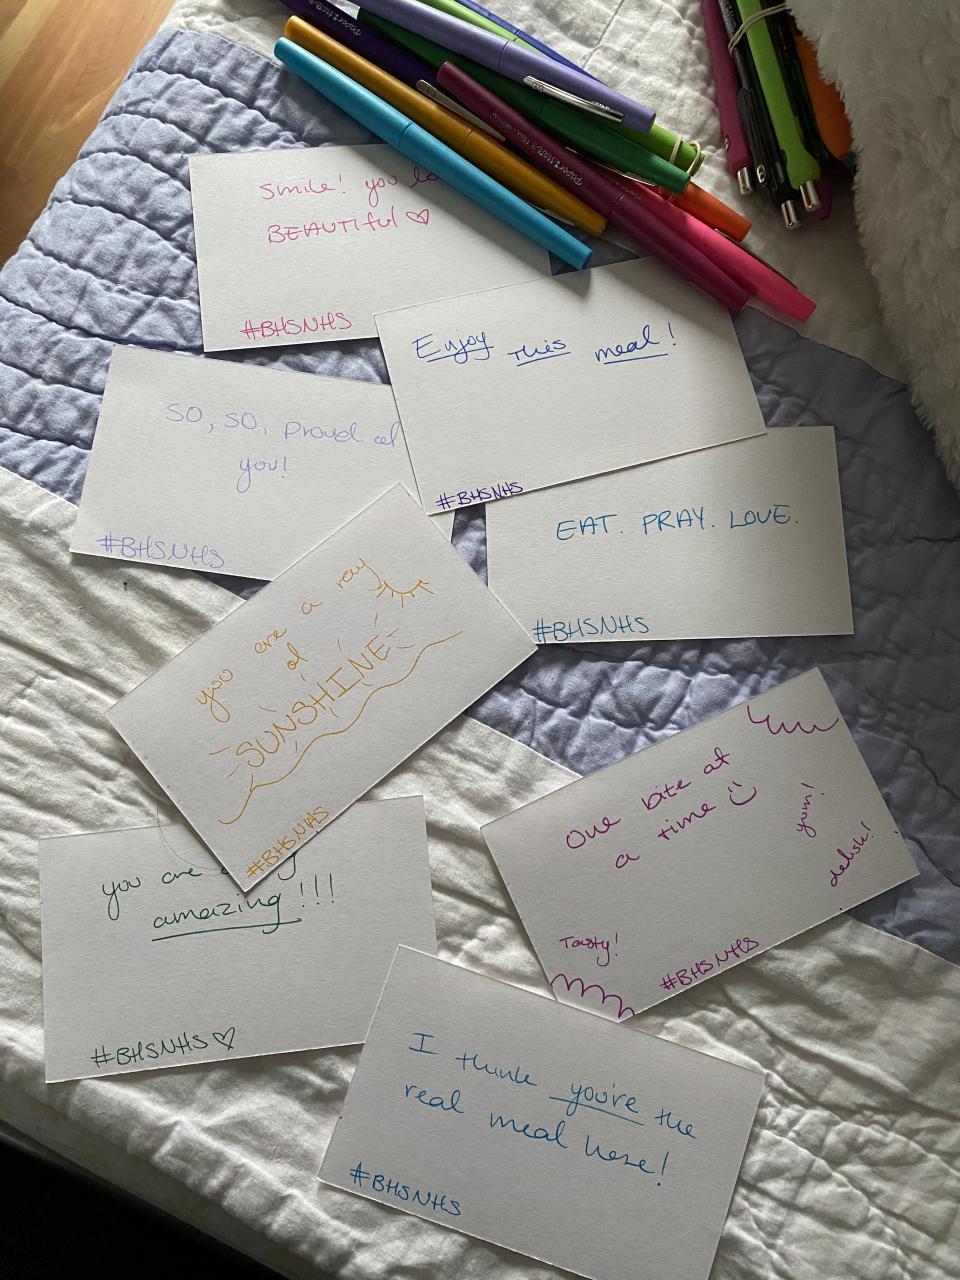 Smile! you lo
BEAUTIFUL ♡
#BHSNHS
Enjoy this meal!
#BHSNHS
SO, SO, Proud of
you!
#BHSNHS
EAT. PRAY. LOVE.
#BHSNHS
you are a ray
of
SUNSHINE
#BHSNHS
One bite at
a time
yum!
delish!
Tasty!
#BHSNHS
you are
amazing!!!
#BHSNHS ♡
I think you're the
real meal here!
#BHSNHS
PaperMate
PaperMate
PaperMate